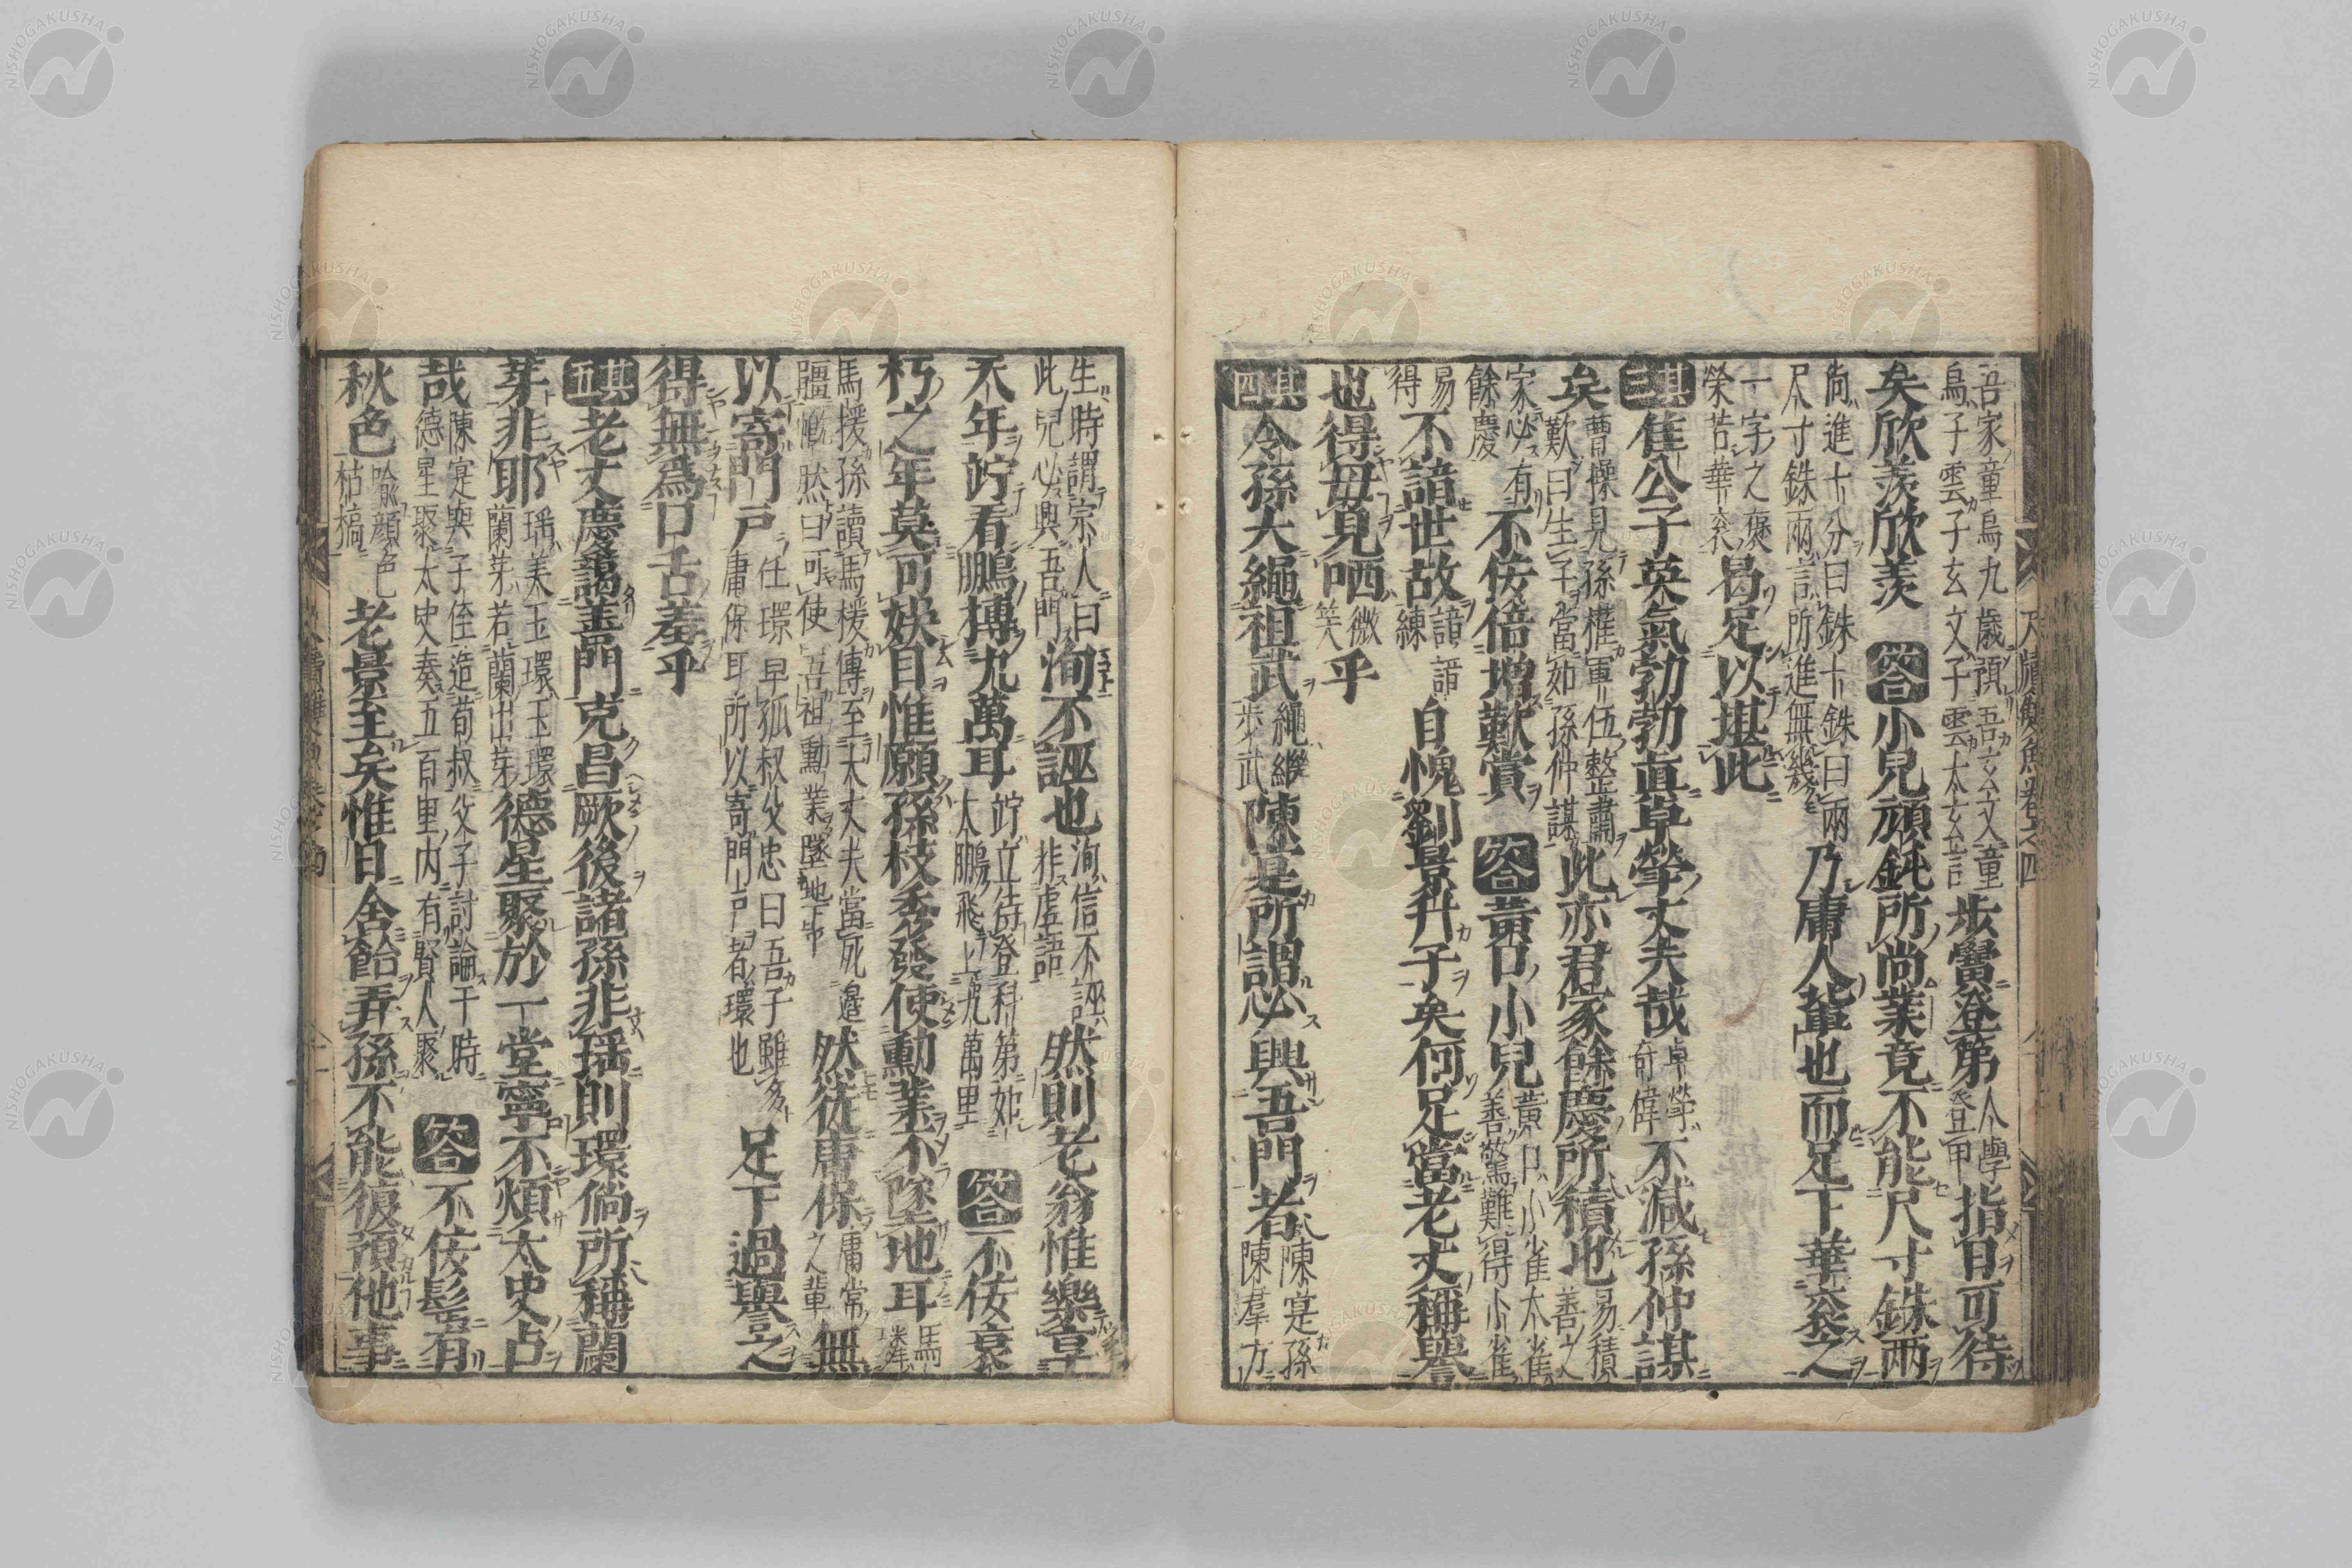 吾家童烏九歲預吾玄文童
烏子雲子玄文子雲太玄言
歩蟾登第
入學登甲
指日可待
矣欣羨欣羨 答小兒頑鈍所尚業竟不能尺寸銖兩
尚進十分曰銖十銖曰兩
尺寸銖兩言所進無幾
乃庸人輩也而足下華袞之
一字之褒
榮若華袞
曷足以堪此
其三 隹公子英氣勃勃眞卓犖丈夫哉
卓犖
奇偉
不減孫仲謀
矣
曹操見孫權軍伍整肅
歎曰生子當如孫仲謀
此亦君家餘慶所積也
易積
善之
家必有
餘慶
不佞倍增歎賞 答黄口小兒
黄口小雀大雀
善驚難得小雀
易
得
不諳世故
諳諳
練
自愧劉景升子矣何足當老丈稱譽
也得毋見哂
微
笑
乎
其四 令孫大繩祖武
繩繼
歩武
陳寔所謂必興吾門者
陳寔孫
陳羣方
生時謂宗人曰
此兒必興吾門
洵不誣也
洵信不誣
非虚語
然則老翁惟樂享
天年竚看鵬摶九萬耳
竚立待登科第如
大鵬飛上九萬里
答 不佞衰
朽之年莫可娯目惟願孫枝秀發使勳業不墜地耳
馬
璘
馬援孫讀馬援傳至大丈夫當死邊
疆慨然曰可使吾祖勳業墜地乎
然從庸保
庸常
之輩
無
以寄門戸
任環早孤叔父忠曰吾子雖多
庸保耳所以寄門戸者環也
足下過譽之
得無爲口舌羞乎
其五 老丈慶藹善門克昌厥後諸孫非瑤則環倘所稱蘭
芽非耶
瑤美玉環玉環
蘭芽若蘭出芽
德星聚於一堂寧不煩太史占
哉
陳寔與子侄造荀叔父子討論于時
德星聚太史奏五百里内有賢人聚
答 不佞髩有
秋色
喩顏色
枯槁
老景至矣惟日含飴弄孫不能復預他事